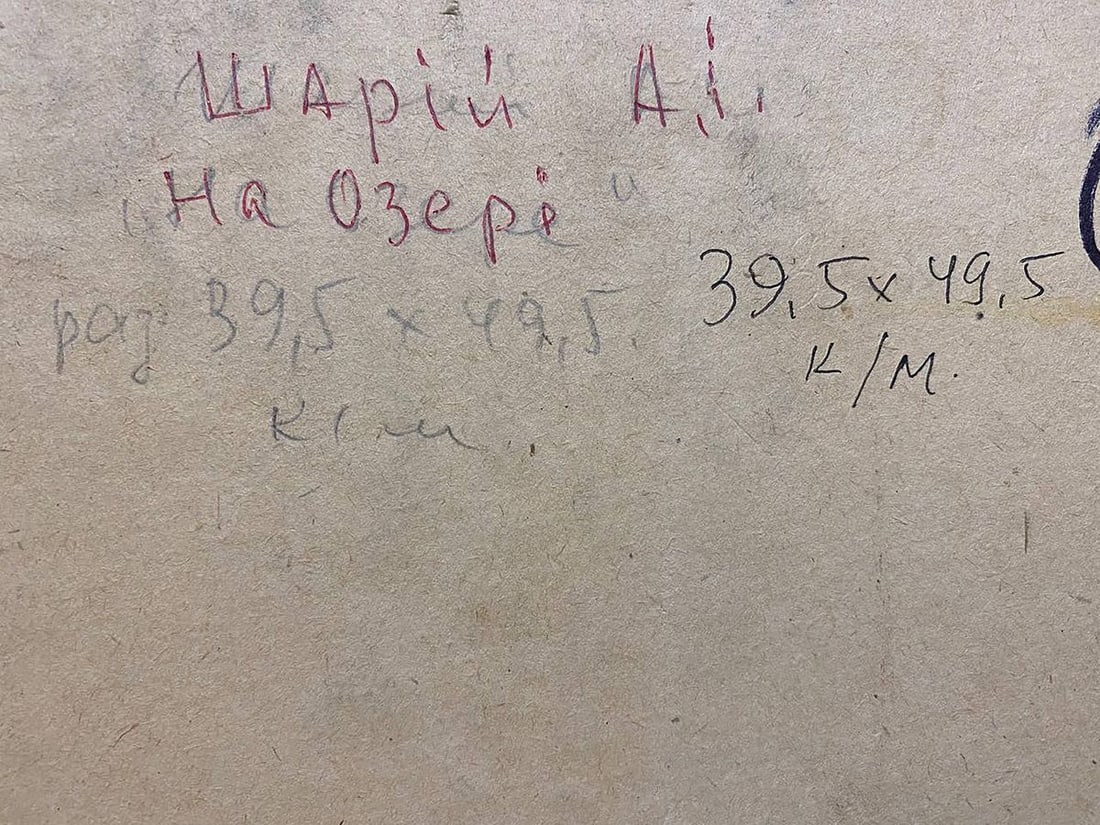 Шарій А.І.
"На Озері"
раз 39,5 х 49,5.
к/м.
39,5 х 49,5
к/м.